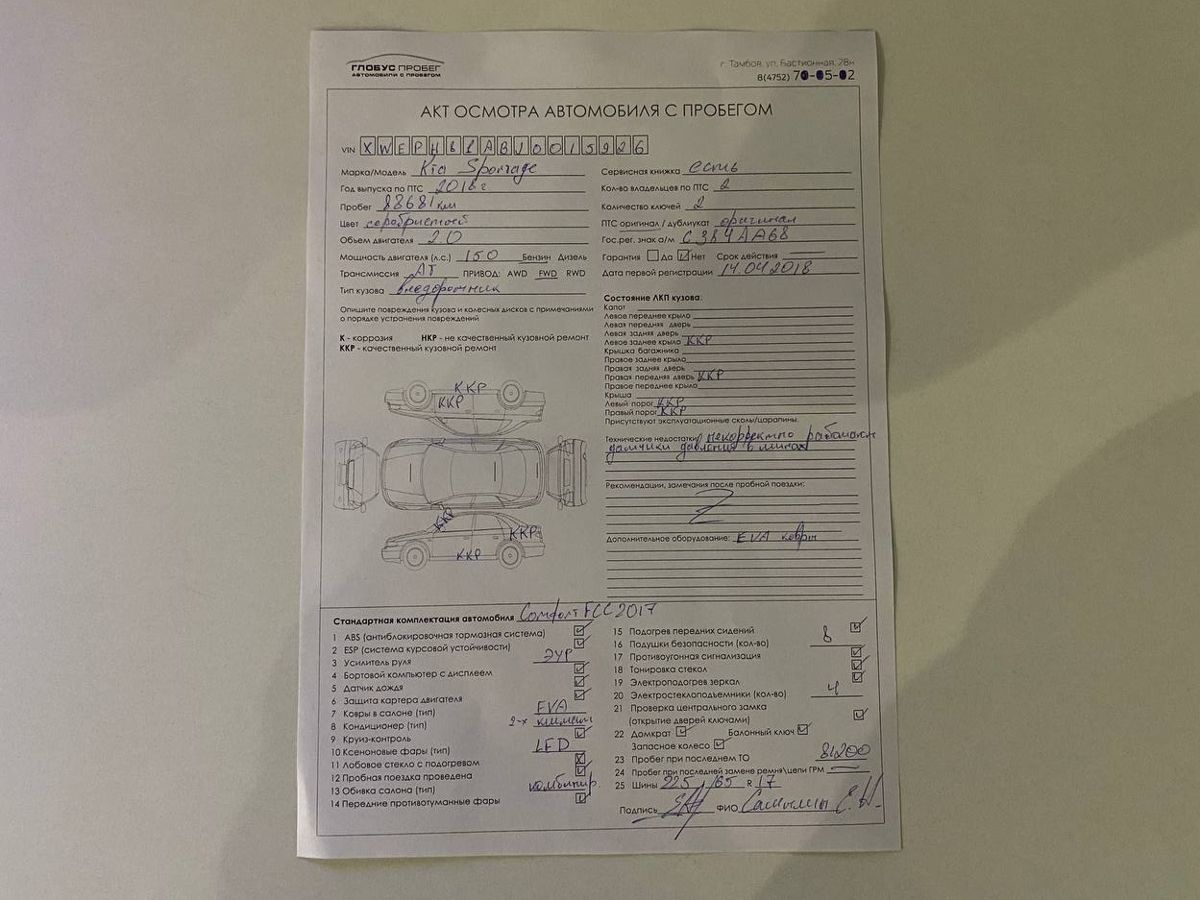 ГЛОБУС ПРОБЕГ
АВТОМОБИЛИ С ПРОБЕГОМ
г. Тамбов, ул. Бастионная, 28н
8(4752) 70-05-02
АКТ ОСМОТРА АВТОМОБИЛЯ С ПРОБЕГОМ
VIN XWEPH81ABJ0015926
Марка/Модель Kia Sportage
Год выпуска по ПТС 2018 г
Пробег 88681 км
Цвет серебристый
Объем двигателя 2.0
Мощность двигателя (л.с.) 150 Бензин Дизель
Трансмиссия АТ ПРИВОД: AWD FWD RWD
Тип кузова внедорожник
Опишите повреждения кузова и колесных дисков с примечаниями
о порядке устранения повреждений
К - коррозия НКР - не качественный кузовной ремонт
ККР - качественный кузовной ремонт
ККР
ККР
ККР
ККР
ККР
Сервисная книжка есть
Кол-во владельцев по ПТС 2
Количество ключей 2
ПТС оригинал / дубликат оригинал
Гос.рег. знак а/м С384АА68
Гарантия Да Нет Срок действия
Дата первой регистрации 14.04.2018
Состояние ЛКП кузова:
Капот
Левое переднее крыло
Левая передняя дверь
Левая задняя дверь
Левое заднее крыло ККР
Крышка багажника
Правое заднее крыло
Правая задняя дверь
Правая передняя дверь ККР
Правое переднее крыло
Крыша
Левый порог ККР
Правый порог ККР
Присутствуют эксплуатационные сколы/царапины
Технические недостатки некорректно работают
датчики давления в шинах
Рекомендации, замечания после пробной поездки:
Z
Дополнительное оборудование: EVA ковры
Стандартная комплектация автомобиля Comfort FCC 2017
1 ABS (антиблокировочная тормозная система)
2 ESP (система курсовой устойчивости)
3 Усилитель руля ЭУР
4 Бортовой компьютер с дисплеем
5 Датчик дождя
6 Защита картера двигателя
7 Ковры в салоне (тип) EVA
8 Кондиционер (тип) 2-х климат
9 Круиз-контроль
10 Ксеноновые фары (тип) LED
11 Лобовое стекло с подогревом
12 Пробная поездка проведена
13 Обивка салона (тип) комбинир.
14 Передние противотуманные фары
15 Подогрев передних сидений
16 Подушки безопасности (кол-во) 8
17 Противоугонная сигнализация
18 Тонировка стекол
19 Электроподогрев зеркал
20 Электростеклоподъемники (кол-во) 4
21 Проверка центрального замка
(открытие дверей ключами)
22 Домкрат Балонный ключ
Запасное колесо
23 Пробег при последнем ТО 81200
24 Пробег при последней замене ремня\цепи ГРМ —
25 Шины 225 / 65 R 17
Подпись ФИО